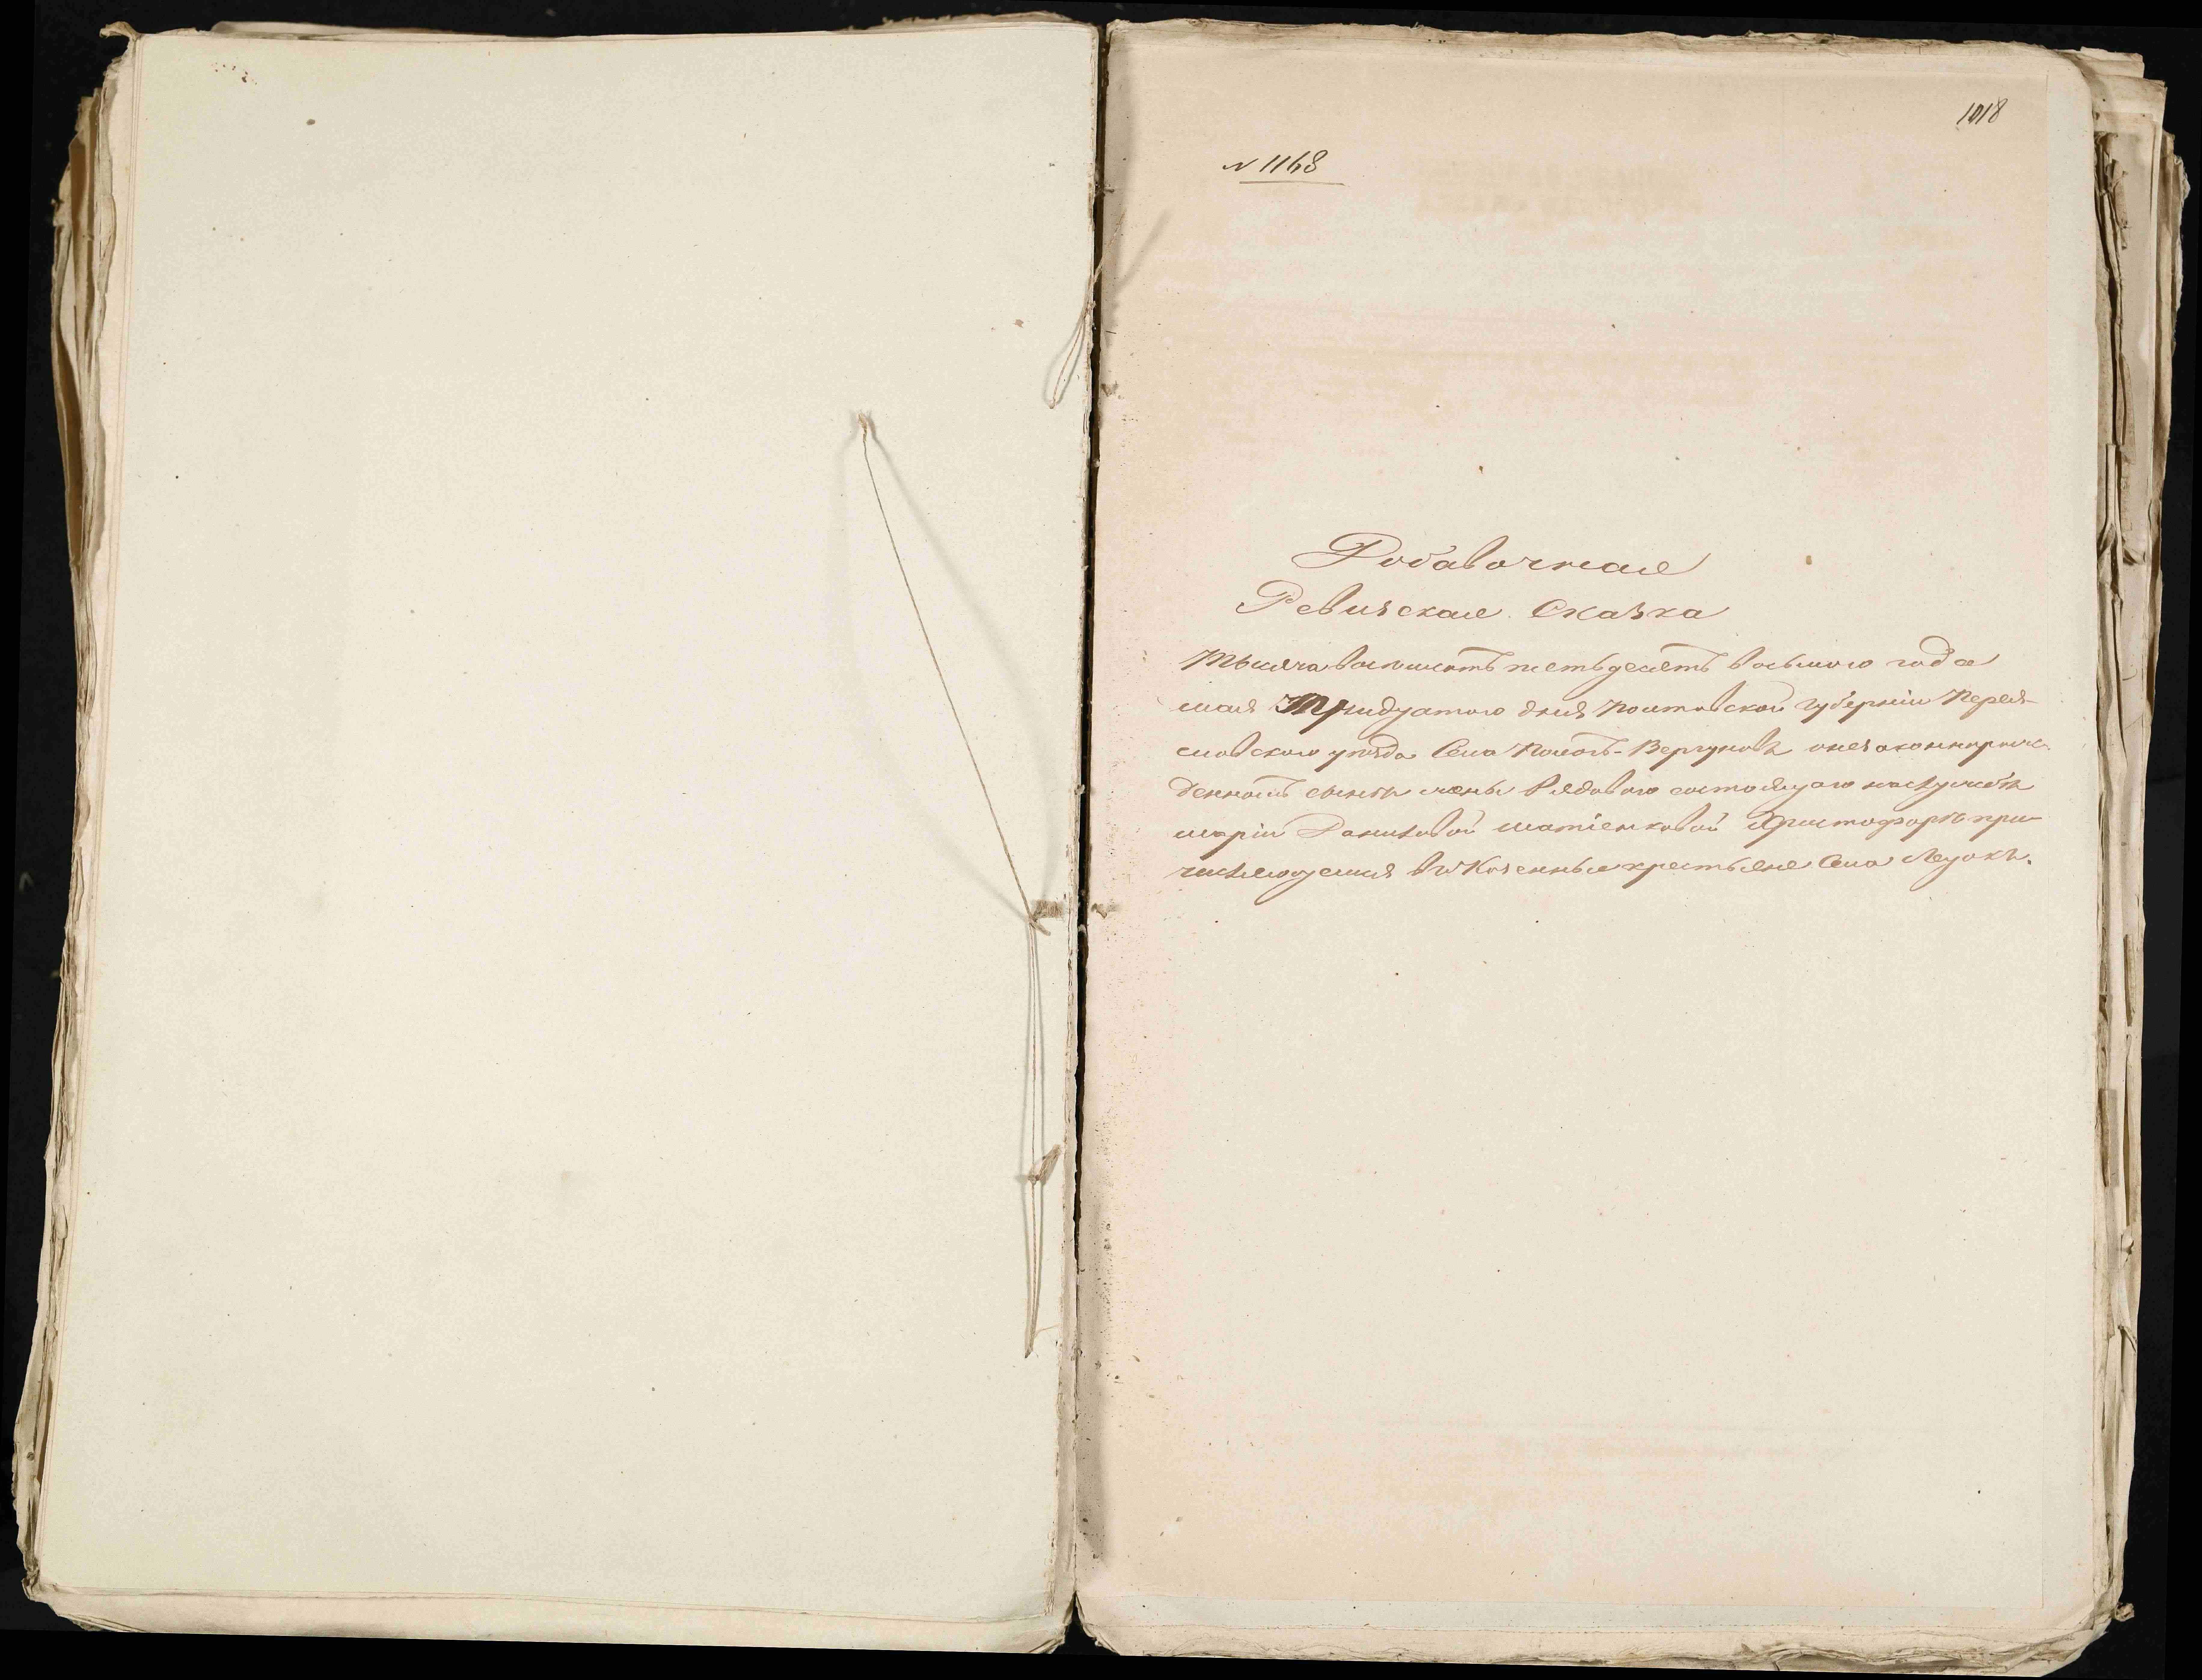 1018
N 1168
Добавочная
Ревизская Сказка
Тысяча восемьсотъ пятьдесятъ восьмого года
мая Тридцатого дня Полтавской губерніи Перея-
славского уѣзда Села Помокъ-Вергуновъ онезаконнорож-
денномъ сынѣ жены Рядового состоящаго наслужбѣ
Маріи Даниловой Христофорѣ при-
численномъ въ Казенные крестьяне Села